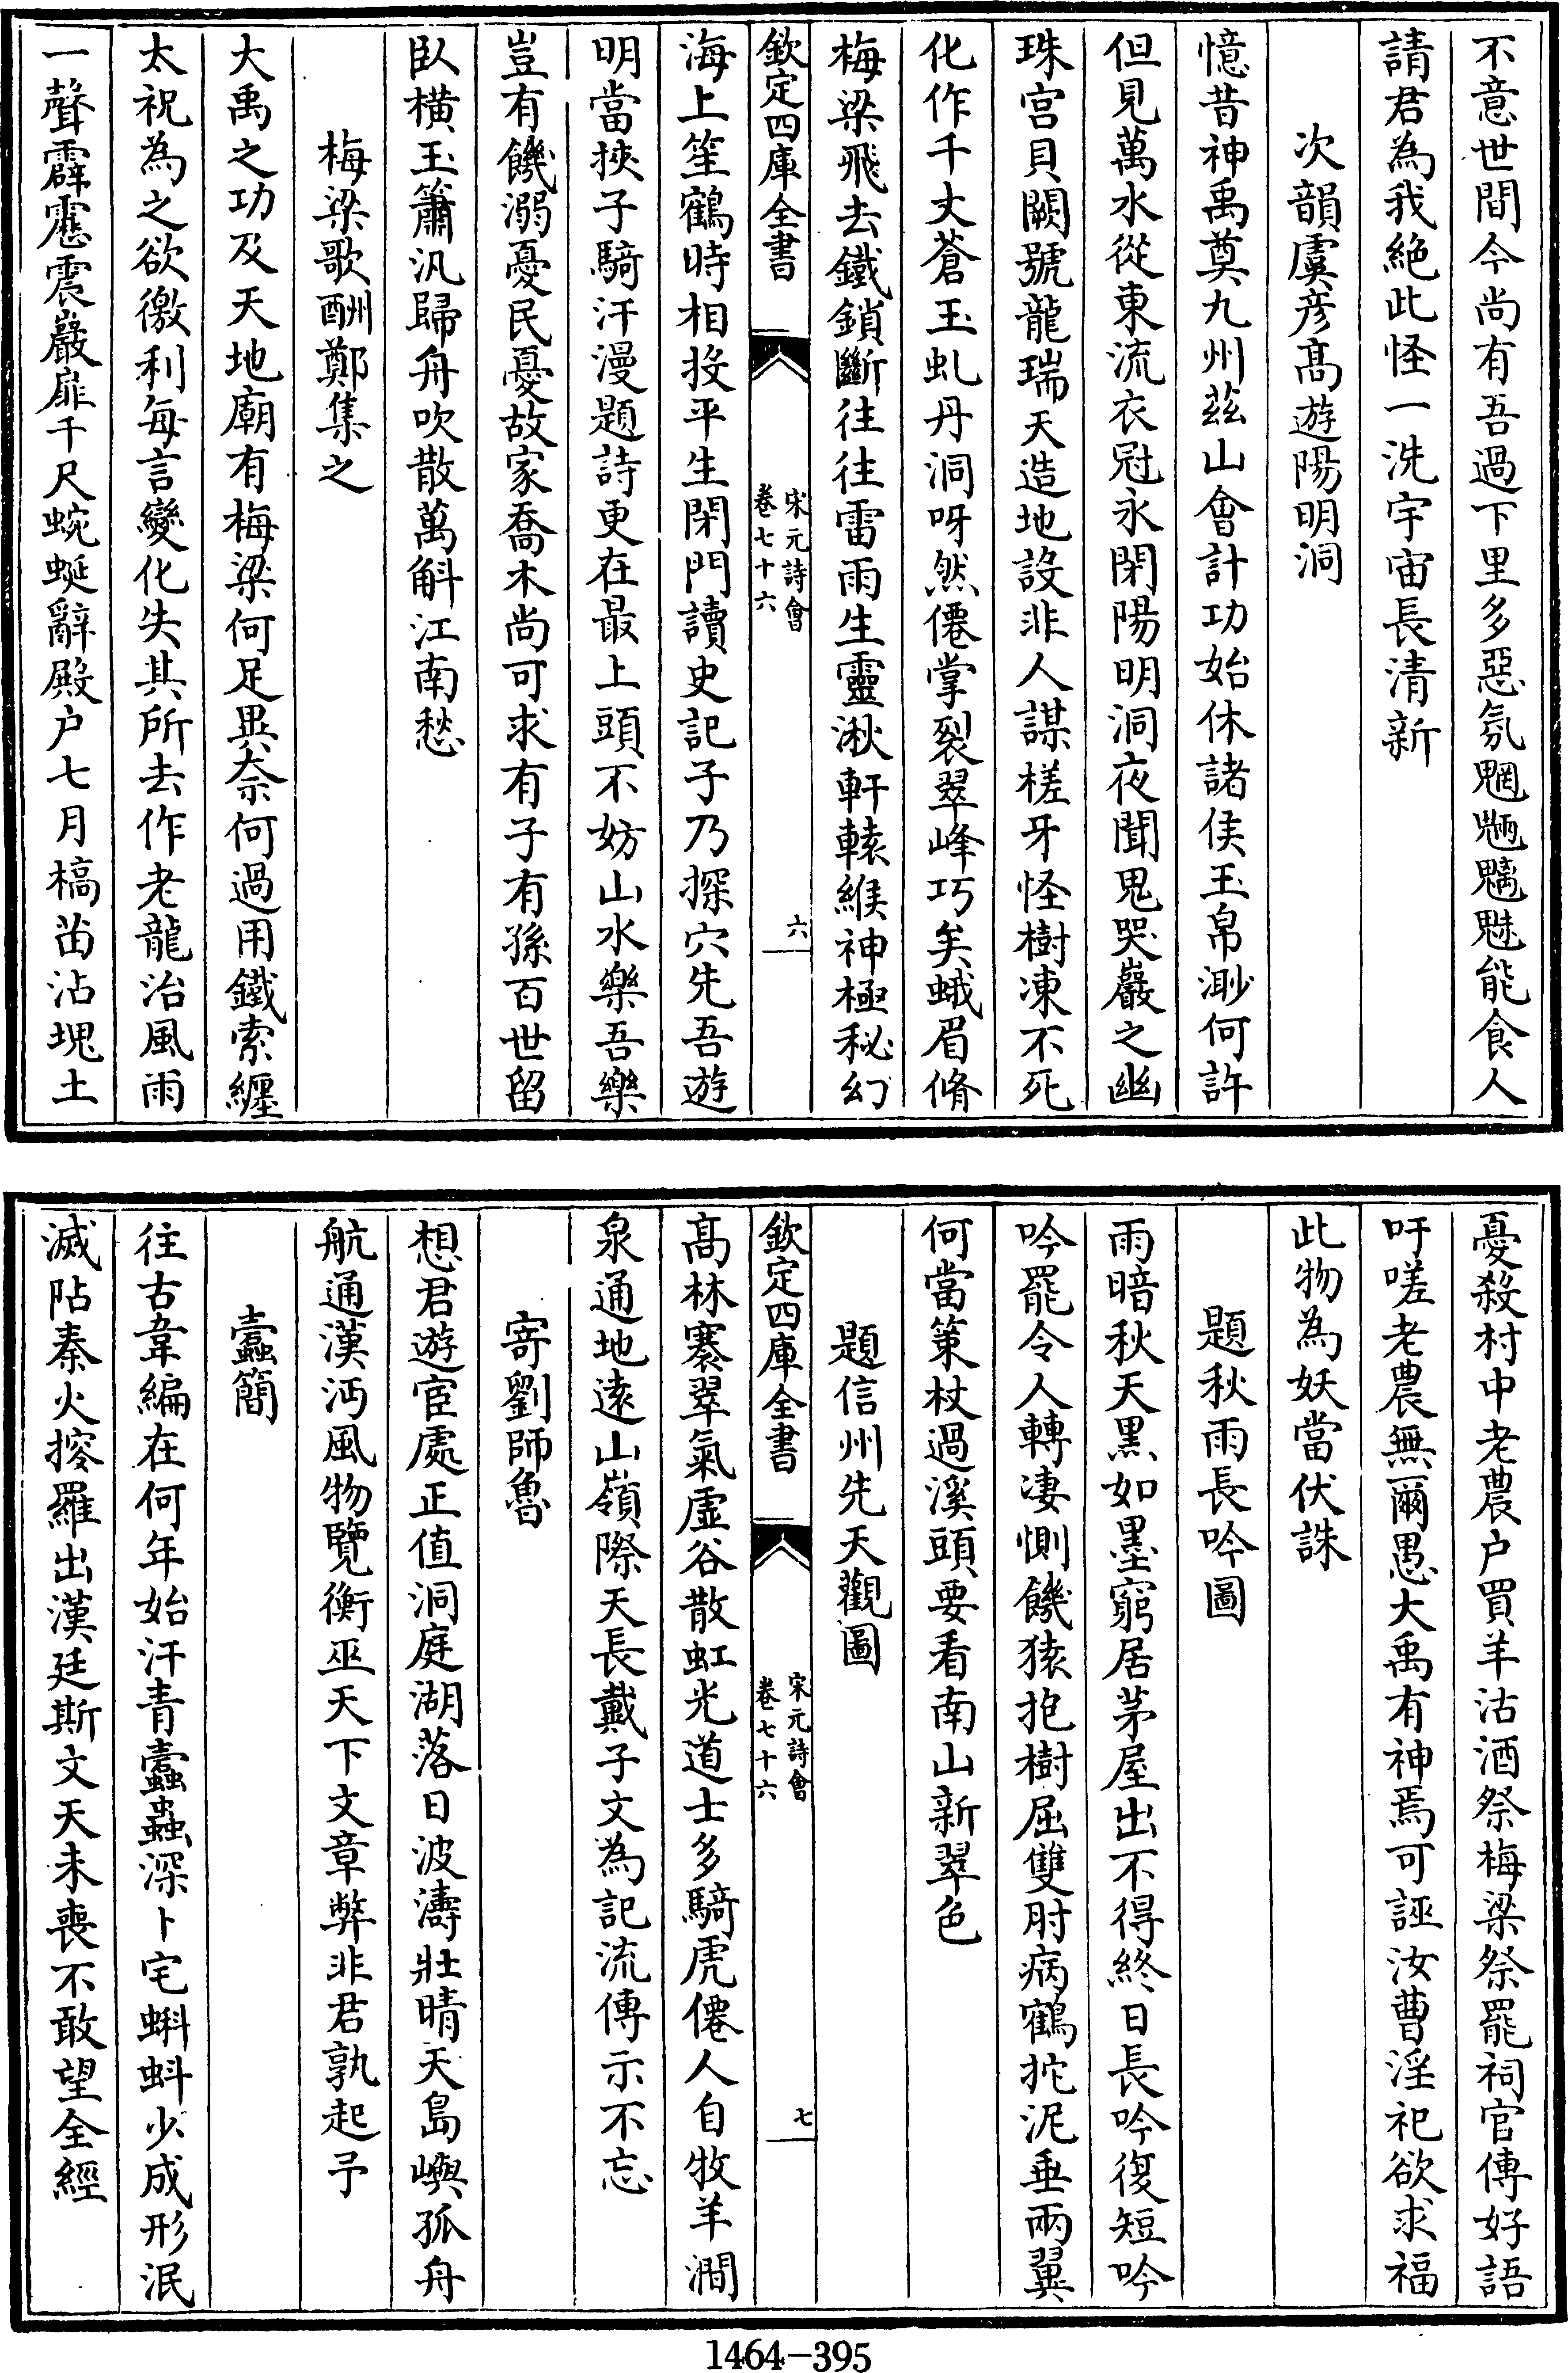 不意世間今尚有吾過下里多惡氛魍魎魑魅能食人
請君為我絶此怪一洗宇宙長清新
次韻虞彦髙遊陽明洞
憶昔神禹奠九州茲山會計功始休諸侯玉帛渺何許
但見萬水從東流衣冠永閉陽明洞夜聞鬼哭巖之幽
珠宫貝闕號龍瑞天造地設非人謀槎牙怪樹凍不死
化作千丈蒼玉虬丹洞呀然僊掌裂翠峰巧矣蛾眉脩
梅梁飛去鐵鎖斷往往雷雨生靈湫軒轅緱神極秘幻
欽定四庫全書
宋元詩會
卷七十六
六
海上笙鶴時相投平生閉門讀史記子乃探穴先吾遊
明當挾子騎汗漫題詩更在最上頭不妨山水樂吾樂
豈有饑溺憂民憂故家喬木尚可求有子有孫百世留
臥橫玉簫汎歸舟吹散萬斛江南愁
梅梁歌酬鄭集之
大禹之功及天地廟有梅梁何足異奈何過用鐵索纏
太祝為之欲徼利每言變化失其所去作老龍治風雨
一聲霹靂震巖扉千尺蜿蜒辭殿户七月槁苗沾塊土
憂殺村中老農户買羊沽酒祭梅梁祭罷祠官傳好語
吁嗟老農無爾愚大禹有神焉可誣汝曹淫祀欲求福
此物為妖當伏誅
題秋雨長吟圖
雨暗秋天黑如墨窮居茅屋出不得終日長吟復短吟
吟罷令人轉凄惻饑猿抱樹屈雙肘病鶴拕泥垂兩翼
何當策杖過溪頭要看南山新翠色
題信州先天觀圖
欽定四庫全書
宋元詩會
卷七十六
七
髙林褰翠氣虚谷散虹光道士多騎虎僊人自牧羊澗
泉通地遠山嶺際天長戴子文為記流傳示不忘
寄劉師魯
想君遊宦處正值洞庭湖落日波濤壯晴天島嶼孤舟
航通漢沔風物覽衡巫天下文章弊非君孰起予
蠹簡
往古韋編在何年始汗青蠹蟲深卜宅蝌蚪少成形泯
滅阽秦火搜羅出漢廷斯文天未喪不敢望全經
1464-395